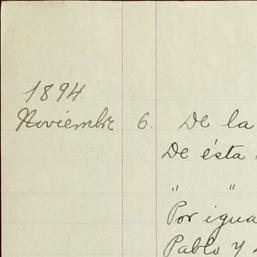 1894.
Noviembre 6. De la
De ésta
" "
Por igua
Pablo y